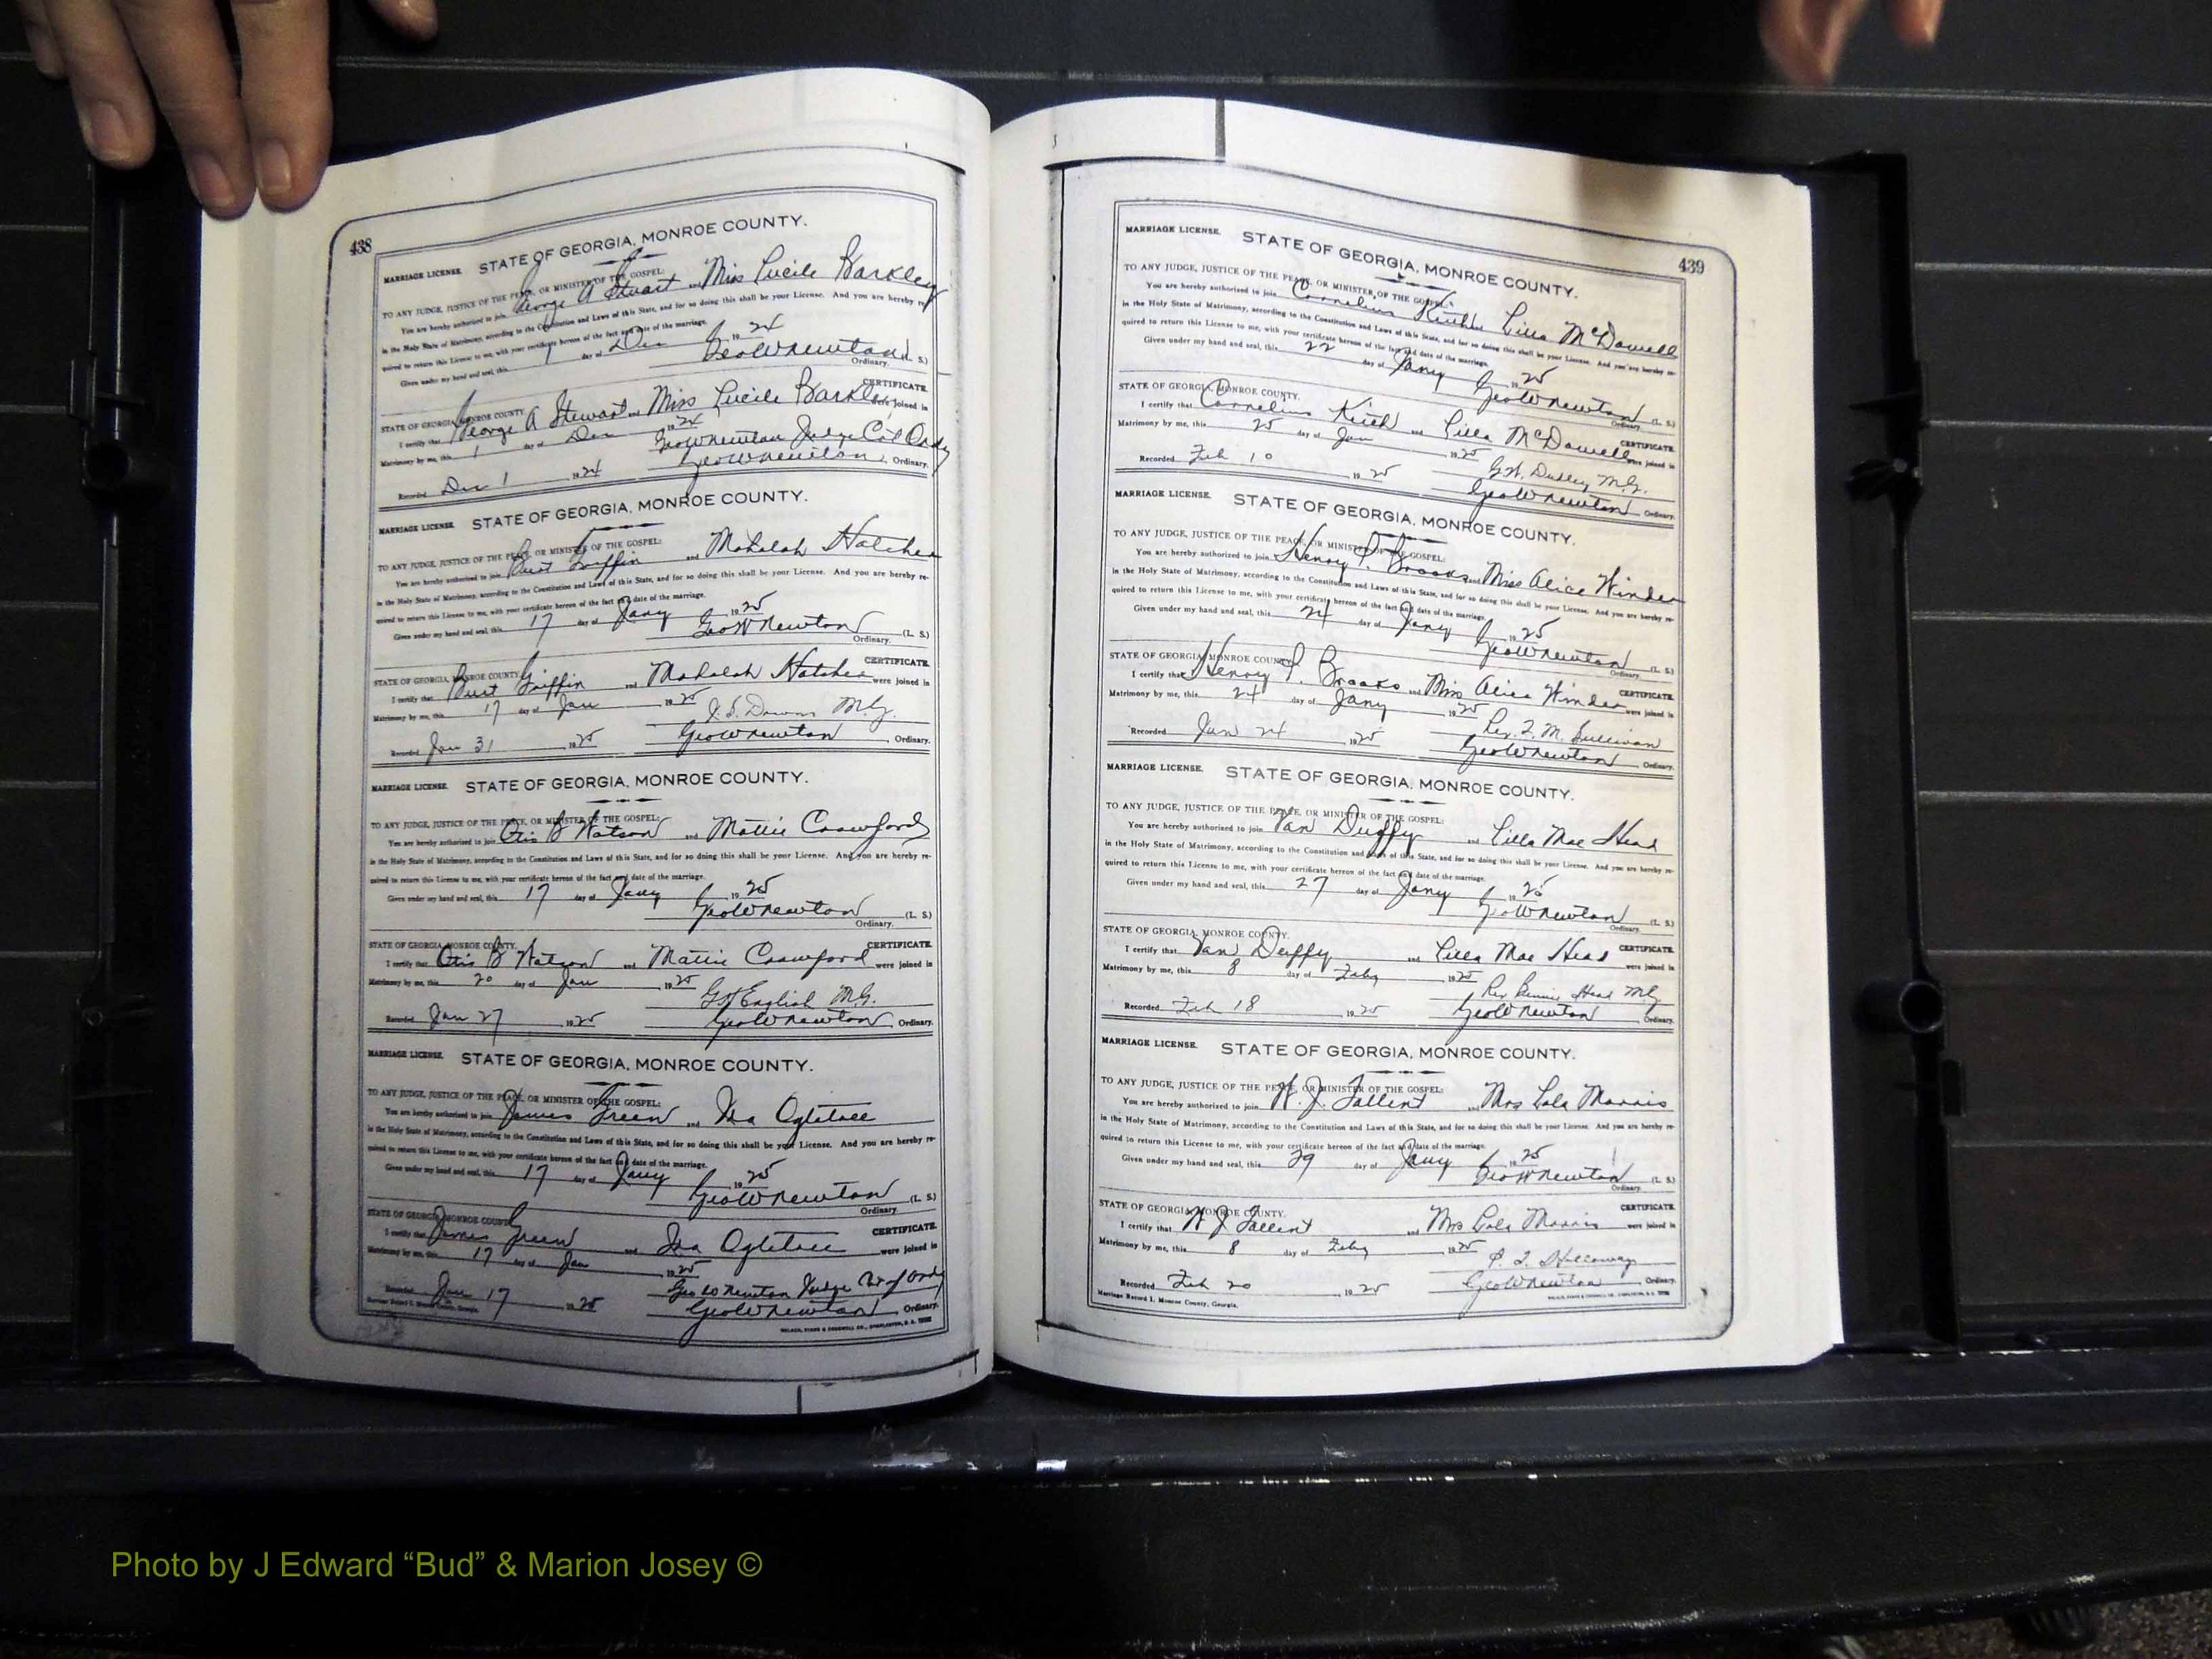 438
MARRIAGE LICENSE. STATE OF GEORGIA, MONROE COUNTY.
TO ANY JUDGE, JUSTICE OF THE PEACE, OR MINISTER OF THE GOSPEL:
You are hereby authorized to join George A Stuart and Miss Lucile Barkley
in the Holy State of Matrimony, according to the Constitution and Laws of this State, and for so doing this shall be your License. And you are hereby re-
quired to return this License to me, with your certificate hereon of the fact and date of the marriage.
Given under my hand and seal, this 1 day of Dec 1924
GeoWNewton (L. S.)
Ordinary.
STATE OF GEORGIA, MONROE COUNTY. CERTIFICATE.
I certify that George A Stewart and Miss Lucile Barkley were joined in
Matrimony by me, this 1 day of Dec 1924
GeoWNewton Judge Ct Ordy
Recorded Dec 1 1924 GeoWNewton, Ordinary.
MARRIAGE LICENSE. STATE OF GEORGIA, MONROE COUNTY.
TO ANY JUDGE, JUSTICE OF THE PEACE, OR MINISTER OF THE GOSPEL:
You are hereby authorized to join Burt Griffin and Mahalah Hatcher
in the Holy State of Matrimony, according to the Constitution and Laws of this State, and for so doing this shall be your License. And you are hereby re-
quired to return this License to me, with your certificate hereon of the fact and date of the marriage.
Given under my hand and seal, this 17 day of Jany 1925
GeoWNewton (L. S.)
Ordinary.
STATE OF GEORGIA, MONROE COUNTY. CERTIFICATE.
I certify that Burt Griffin and Mahalah Hatcher were joined in
Matrimony by me, this 17 day of Jan 1925
Downs M.G.
Recorded Jan 31 1925 GeoWNewton, Ordinary.
MARRIAGE LICENSE. STATE OF GEORGIA, MONROE COUNTY.
TO ANY JUDGE, JUSTICE OF THE PEACE, OR MINISTER OF THE GOSPEL:
You are hereby authorized to join Otis B Watson and Mattie Crawford
in the Holy State of Matrimony, according to the Constitution and Laws of this State, and for so doing this shall be your License. And you are hereby re-
quired to return this License to me, with your certificate hereon of the fact and date of the marriage.
Given under my hand and seal, this 17 day of Jany 1925
GeoWNewton (L. S.)
Ordinary.
STATE OF GEORGIA, MONROE COUNTY. CERTIFICATE.
I certify that Otis B Watson and Mattie Crawford were joined in
Matrimony by me, this 20 day of Jan 1925
English M.G.
Recorded Jan 27 1925 GeoWNewton, Ordinary.
MARRIAGE LICENSE. STATE OF GEORGIA, MONROE COUNTY.
TO ANY JUDGE, JUSTICE OF THE PEACE, OR MINISTER OF THE GOSPEL:
You are hereby authorized to join James Green and Ida Ogletree
in the Holy State of Matrimony, according to the Constitution and Laws of this State, and for so doing this shall be your License. And you are hereby re-
quired to return this License to me, with your certificate hereon of the fact and date of the marriage.
Given under my hand and seal, this 17 day of Jany 1925
GeoWNewton (L. S.)
Ordinary.
STATE OF GEORGIA, MONROE COUNTY. CERTIFICATE.
I certify that James Green and Ida Ogletree were joined in
Matrimony by me, this 17 day of Jan 1925
Geo W Newton Judge Ct of Ordy
Recorded Jan 17 1925 GeoWNewton, Ordinary.
Marriage Record I, Monroe County, Georgia.
439
MARRIAGE LICENSE. STATE OF GEORGIA, MONROE COUNTY.
TO ANY JUDGE, JUSTICE OF THE PEACE, OR MINISTER OF THE GOSPEL:
You are hereby authorized to join Cornelius Keith Lilla McDowell
in the Holy State of Matrimony, according to the Constitution and Laws of this State, and for so doing this shall be your License. And you are hereby re-
quired to return this License to me, with your certificate hereon of the fact and date of the marriage.
Given under my hand and seal, this 22 day of Jany 1925
GeoWNewton (L. S.)
Ordinary.
STATE OF GEORGIA, MONROE COUNTY. CERTIFICATE.
I certify that Cornelius Keith and Lilla McDowell were joined in
Matrimony by me, this 25 day of Jan 1925
G.W. Dudley M.G.
Recorded Feb 10 1925 GeoWNewton, Ordinary.
MARRIAGE LICENSE. STATE OF GEORGIA, MONROE COUNTY.
TO ANY JUDGE, JUSTICE OF THE PEACE, OR MINISTER OF THE GOSPEL:
You are hereby authorized to join Henry P. Brooks and Miss Alice Winder
in the Holy State of Matrimony, according to the Constitution and Laws of this State, and for so doing this shall be your License. And you are hereby re-
quired to return this License to me, with your certificate hereon of the fact and date of the marriage.
Given under my hand and seal, this 24 day of Jany 1925
GeoWNewton (L. S.)
Ordinary.
STATE OF GEORGIA, MONROE COUNTY. CERTIFICATE.
I certify that Henry P. Brooks and Miss Alice Winder were joined in
Matrimony by me, this 24 day of Jany 1925
Rev. M. Sullivan
Recorded Jan 24 1925 GeoWNewton, Ordinary.
MARRIAGE LICENSE. STATE OF GEORGIA, MONROE COUNTY.
TO ANY JUDGE, JUSTICE OF THE PEACE, OR MINISTER OF THE GOSPEL:
You are hereby authorized to join Van Duffy and Lilla Mae Head
in the Holy State of Matrimony, according to the Constitution and Laws of this State, and for so doing this shall be your License. And you are hereby re-
quired to return this License to me, with your certificate hereon of the fact and date of the marriage.
Given under my hand and seal, this 27 day of Jany 1925
GeoWNewton (L. S.)
Ordinary.
STATE OF GEORGIA, MONROE COUNTY. CERTIFICATE.
I certify that Van Duffy and Lilla Mae Head were joined in
Matrimony by me, this 8 day of Feby 1925
Rev Bennie Head M.G.
Recorded Feb 18 1925 GeoWNewton Ordinary.
MARRIAGE LICENSE. STATE OF GEORGIA, MONROE COUNTY.
TO ANY JUDGE, JUSTICE OF THE PEACE, OR MINISTER OF THE GOSPEL:
You are hereby authorized to join W. J. Tallent and Mrs Lola Morris
in the Holy State of Matrimony, according to the Constitution and Laws of this State, and for so doing this shall be your License. And you are hereby re-
quired to return this License to me, with your certificate hereon of the fact and date of the marriage.
Given under my hand and seal, this 29 day of Jany 1925
GeoWNewton (L. S.)
Ordinary.
STATE OF GEORGIA, MONROE COUNTY. CERTIFICATE.
I certify that W J Tallent and Mrs Lola Morris were joined in
Matrimony by me, this 8 day of Feby 1925
Holloway
Recorded Feb 20 1925 GeoWNewton Ordinary.
Marriage Record I, Monroe County, Georgia.
Photo by J Edward “Bud” & Marion Josey ©